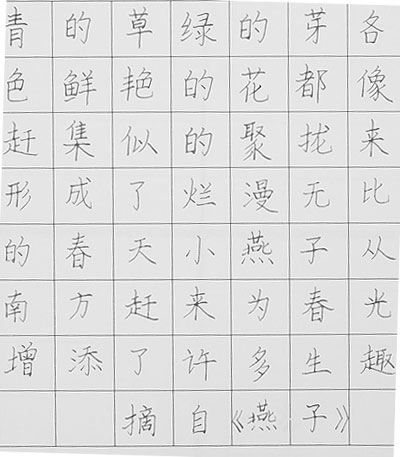 青的草绿的芽各
色鲜艳的花都像
赶集似的聚拢来
形成了烂漫无比
的春天小燕子从
南方赶来为春光
增添了许多生趣
摘自《燕子》